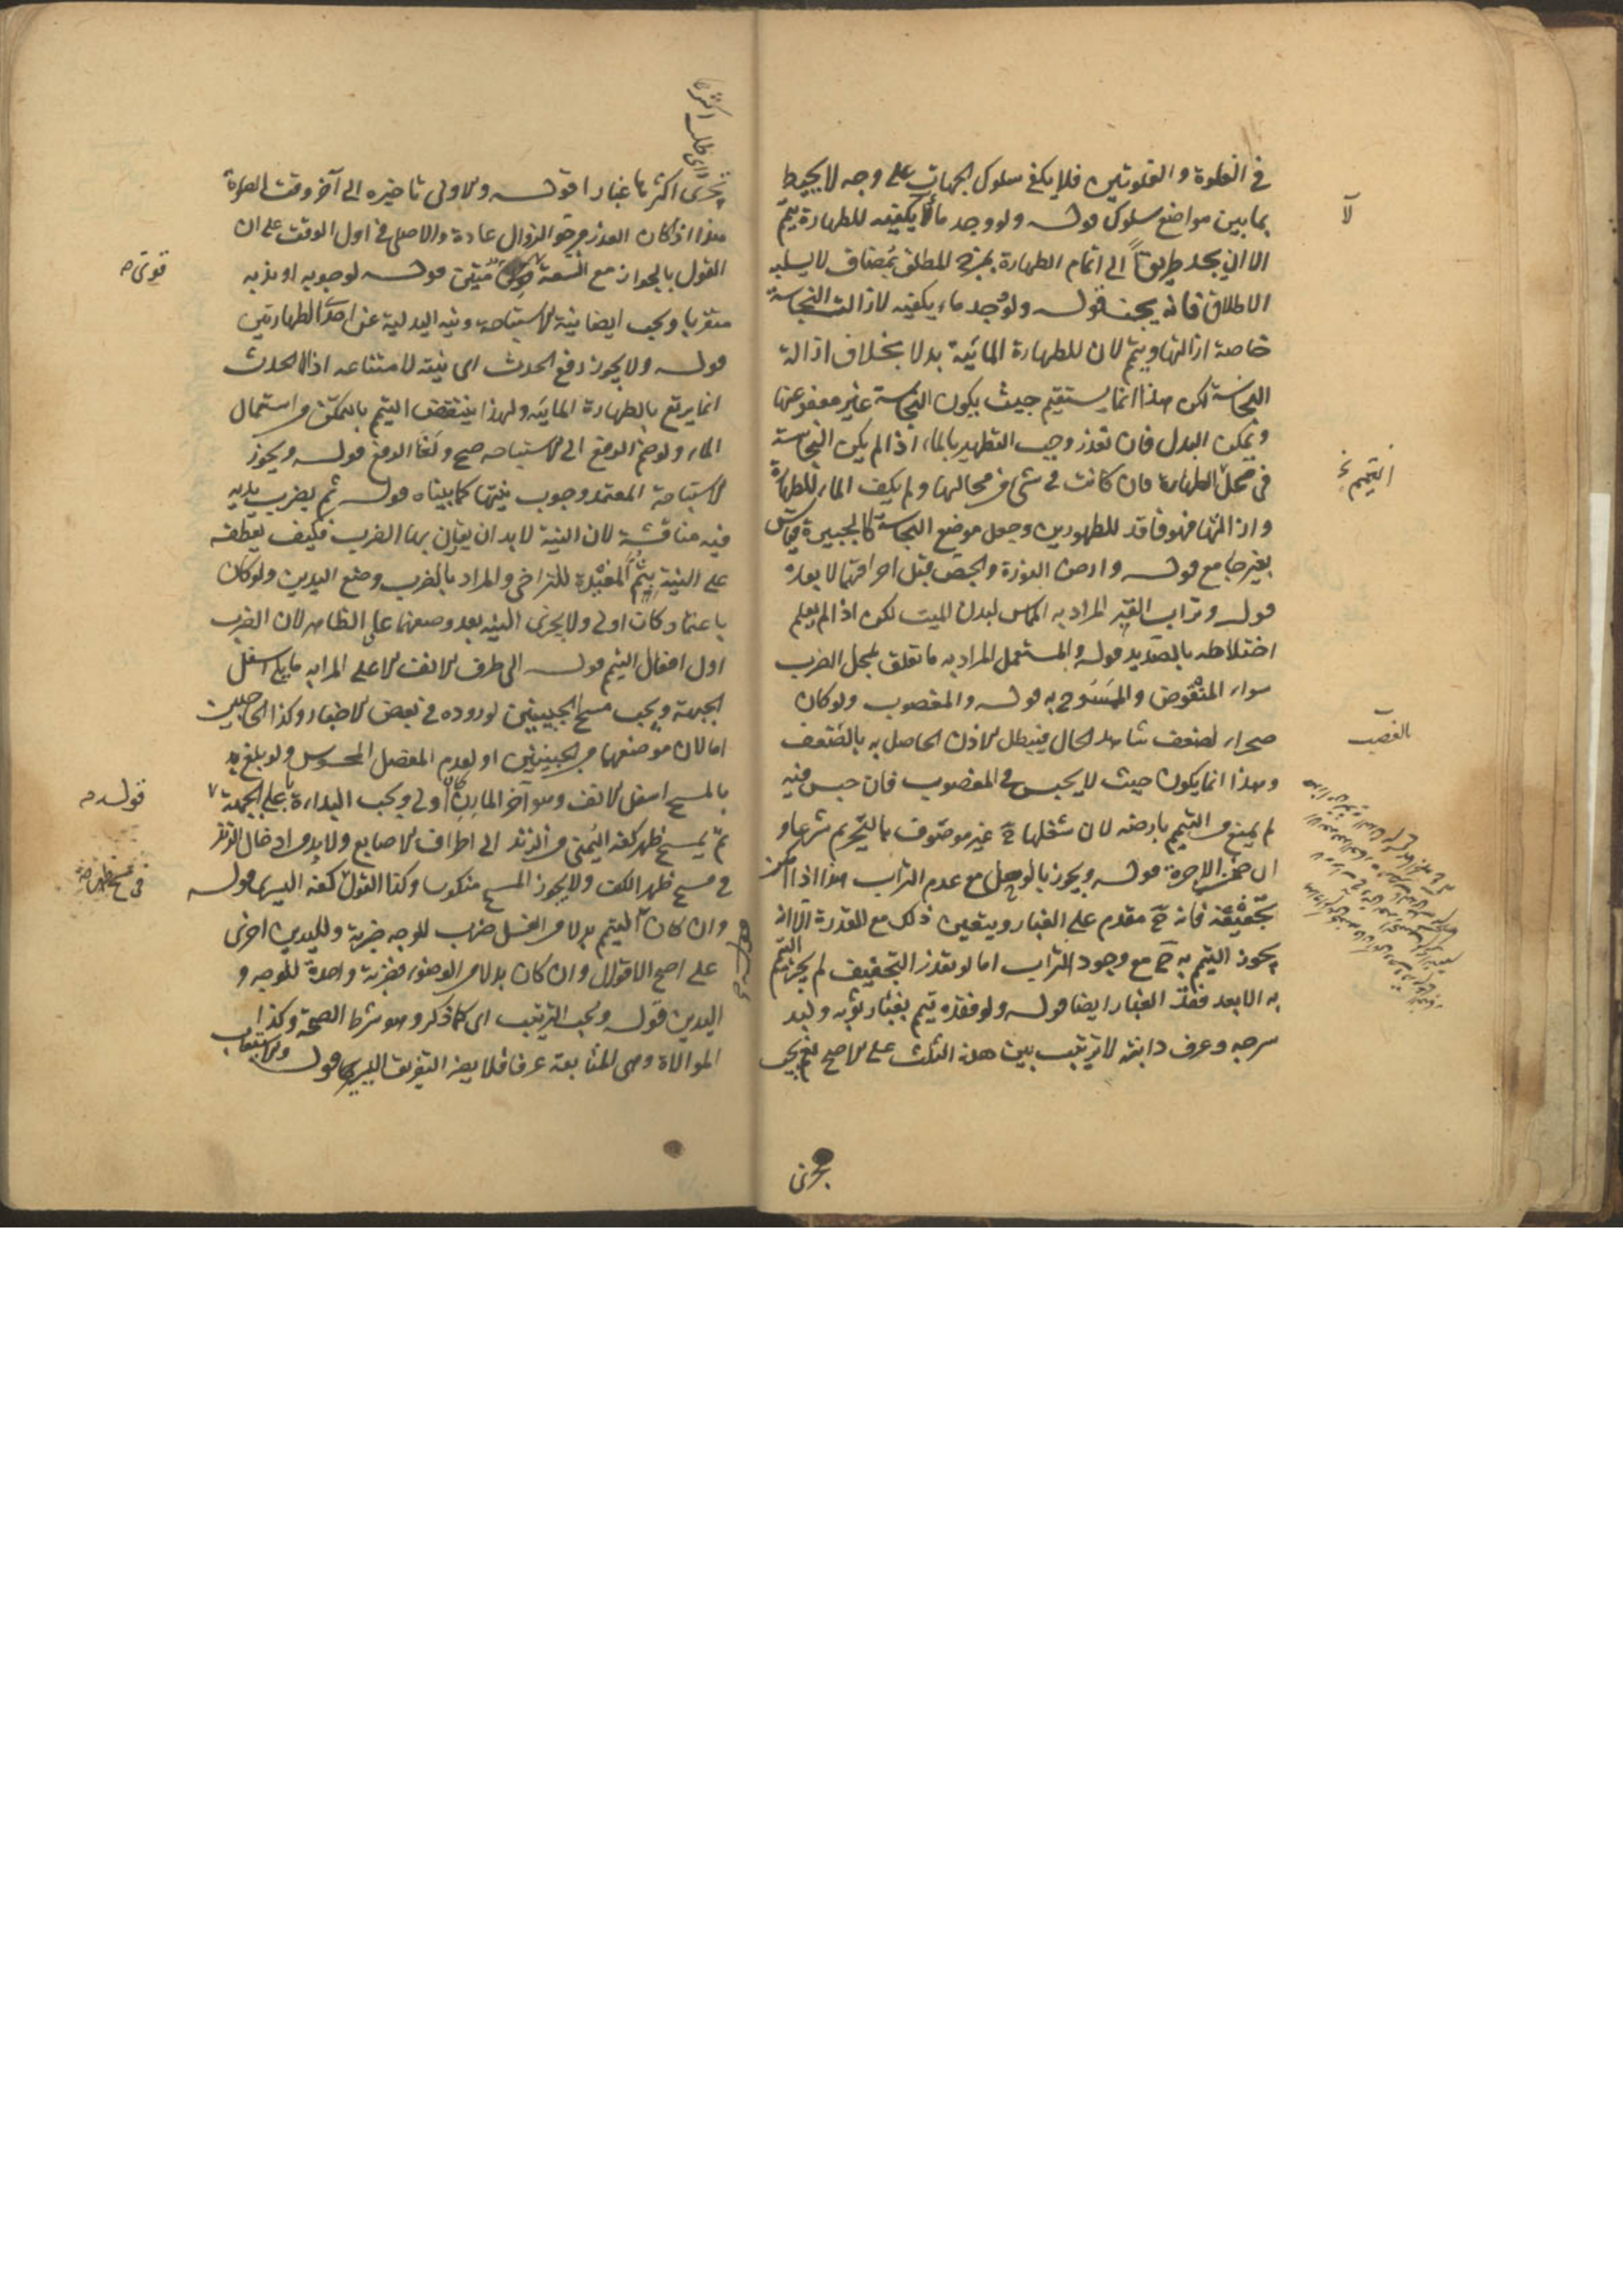 في الغلوة والغلوتين فلا يكفي سلوك الجهات على وجه لا يحيط
بما بين مواضع سلوك قوله ولو وجد ماء لا يكفيه للطهارة يتيمم
الا ان يجد طريقاً الى اتمام الطهارة بمزج المطلق بمضاف لا يسلبه
الاطلاق فانه يجب قوله ولو وجد ماء يكفيه لازالة النجاسة
خاصة ازالها ويتيمم لان للطهارة المائية بدلا بخلاف ازالة
النجاسة لكن هذا انما يستقيم حيث يكون النجاسة غير معفو عنها
ويمكن البدل فان تعذر وجب التطهير بالماء اذا لم يكن النجاسة
في محل الطهارة فان كانت في شيء من محالها ولم يكف الماء للطهارة
وازالتها فهو فاقد للطهورين وجعل موضع النجاسة كالجبيرة قياس
بغير جامع قوله وارض النورة والجص قبل احراقهما لا بعده
قوله وتراب القبر المراد به المماس لبدن الميت لكن اذا لم يعلم
اختلاطه بالصديد قوله والمستعمل المراد به ما تعلق بمحل الضرب
سواء المنفوض والممسوح به قوله والمغصوب ولو كان
صحراء لضعف شاهد الحال فيبطل الاذن الحاصل به بالضعف
وهذا انما يكون حيث لا يحبس في المغصوب فان حبس فيه
لم يمنع من التيمم بارضه لان شغلها ح غير موصوف بالتحريم شرعا و
ان ضمن الاجرة قوله ويجوز بالوحل مع عدم التراب هذا اذا امكن
تجفيفه فانه ح مقدم على الغبار ويتعين ذلك مع القدرة الا انه
يجوز التيمم به ح مع وجود التراب اما لو تعذر التجفيف لم يجز التيمم
به الا بعد فقد الغبار ايضا قوله ولو فقده تيمم بغبار ثوبه ولبد
سرجه وعرف دابته لا ترتيب بين هذه الثلث على الاصح نعم يجب
تحرى
لا
التيمم خ
بالغصب
يتحرى اكثرها غبارا قوله والاولى تاخيره الى آخر وقت الصلوة
هذا اذا كان العذر مرجو الزوال عادة والا صلى في اول الوقت على ان
القول بالجواز مع السعة متين قوله لوجوبه او ندبه
متقربا ويجب ايضا نية الاستباحة ونية البدلية عن احدى الطهارتين
قوله ولا يجوز رفع الحدث اى نيته لامتناعه اذ الحدث
انما يرتفع بالطهارة المائية ولهذا ينتقض التيمم بالتمكن من استعمال
الماء ولو ضم الرفع الى الاستباحة صح ولغا الرفع قوله ويجوز
الاستباحة المعتمد وجوب نيتها كما بيناه قوله ثم يضرب بيديه
فيه مناقشة لان النية لا بد ان يقارن بها الضرب فكيف يعطفه
على النية بثم المفيدة للتراخي والمراد بالضرب وضع اليدين ولو كان
باعتماد كان اولى ولا يجزى النية بعد وضعهما على الظاهر لان الضرب
اول افعال التيمم قوله الى طرف الانف الاعلى المراد به ما يلي اسفل
الجبهة ويجب مسح الجبينين لوروده في بعض الاخبار وكذا الحاجبين
اما لان موضعهما من الجبينين او لعدم المفصل المحسوس ولو بلغ به
بالمسح اسفل الانف وهو آخر المارن كان اولى ويجب البداءة باعلى الجبهة
ثم يمسح ظهر كفه اليمنى من الزند الى اطراف الاصابع ولا بد من ادخال الزند
في مسح ظهر الكف ولا يجوز المسح منكوسا وكذا القول كفه اليسرى قوله
وان كان التيمم بدلا من الغسل ضرب للوجه ضربة ولليدين اخرى
على اصح الاقوال وان كان بدلا من الوضوء فضربة واحدة للوجه و
اليدين قوله ويجب الترتيب اى كما ذكر وهو شرط الصحة وكذا
الموالاة وهى المتابعة عرفا فلا يضر التفريق اليسير قوله والاستيعاب
قوى صه
قوله صه
في مسح ظهر صه